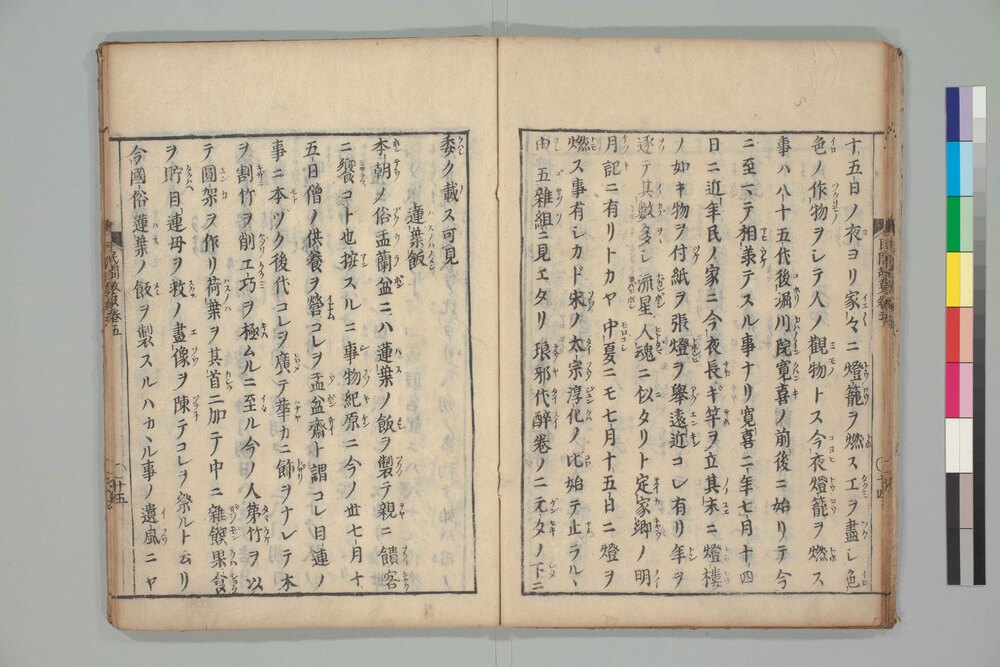 十五日ノ夜ヨリ家々ニ燈籠ヲ燃スエヲ盡シ色
色ノ作物ヲシテ人ノ觀物トス今夜燈籠ヲ燃ス
事ハ八十五代後堀川院寛喜ノ前後ニ始リテ今
ニ至マテ相兼テスル事ナリ寛喜二年七月十四
日ニ近年民ノ家ニ今夜長キ竿ヲ立其末ニ燈樓
ノ如キ物ヲ付紙ヲ張燈ヲ舉遠近コレ有リ年ヲ
逐テ其數多シ流星人魂ニ似タリト定家卿ノ明
月記ニ有リトカヤ中夏ニモ七月十五日ニ燈ヲ
燃ス事有シカド宋ノ太宗淳化ノ比始テ止ラルヽ
由五雜組ニ見エタリ琅邪代醉卷ノ二元タノ下ニ
委ク載ス可見
蓮葉飯
本朝ノ俗盂蘭盆ニハ蓮葉ノ飯ヲ製テ親ニ饋客
ニ饗コト也按スルニ事物紀原ニ今ノ世七月十
五日僧ノ供養ヲ營コレヲ盂盆齋ト謂コレ目連ノ
事ニ本ツク後代コレヲ廣テ華カニ飾ヲナシテ木
ヲ割竹ヲ削エ巧ヲ極ムルニ至ル今ノ人第竹ヲ以
テ圓架ヲ作リ荷葉ヲ其首ニ加テ中ニ雜饌果食
ヲ貯目連母ヲ救ノ畫像ヲ陳テコレヲ祭ルト云リ
今國俗蓮葉ノ飯ヲ製スルハカヽル事ノ遺風ニヤ
民間歳時記卷五
二十五